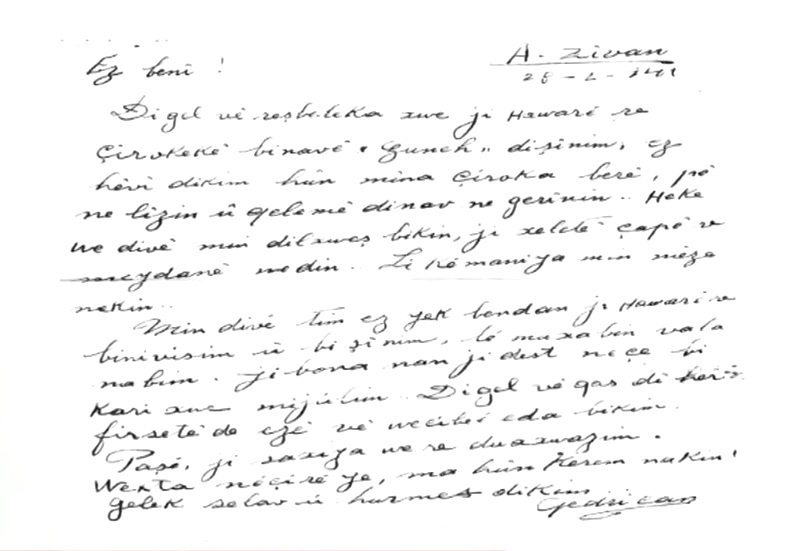 A. Zivan
Ez beni !
Di gel vê reşbeleka xwe ji Hawarê re
çîrokekê binavê « Guneh » dişînim, ez
hêvî dikim hûn mîna çîroka berê, pê
ne lîzin û qelemê dinav ne gerînin.. Heke
we divê min dilxweş bikin, ji xeletê çapê re
meydanê nedin.. Li kêmaniya min mêze
nekin..
Min divê tim ez yek bendan ji Hawarê re
binivîsim û bi şînim, lê muxabin vala
nabim. Ji bona nan ji dest neçe bi
karî xwe mijûlim. Digel vê qas di
firsetê de ezê vê wecîbê eda bikim.
Paşê, ji saxiya we re duaxwazim.
Wexta nêçîrê ye, ma hûn kerem nakin !
Gelek selav û hurmet dikim
Qedrîcan